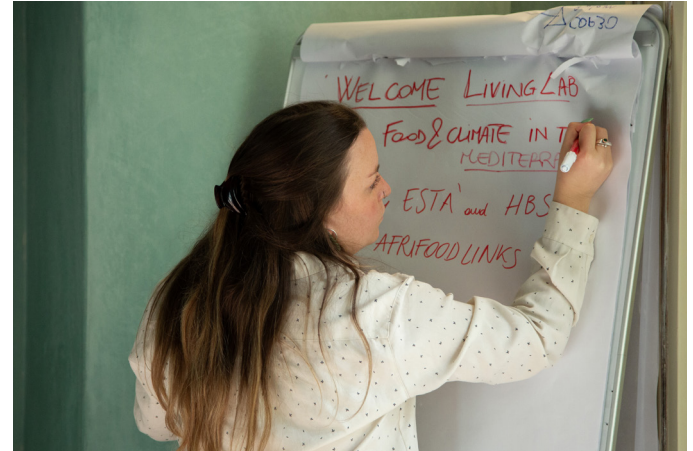 WELCOME LIVING LAB
FOOD & CLIMATE IN
ESTÀ and HBS
AFRIFOODLINKS